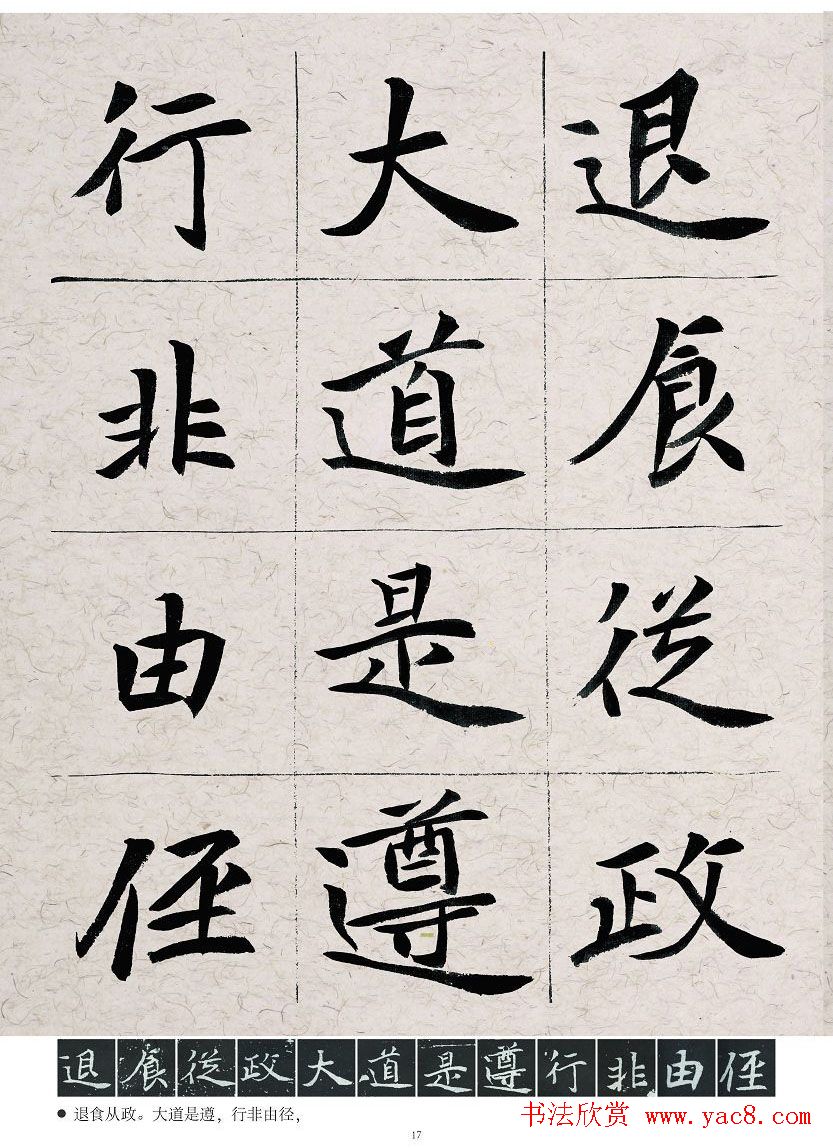 退食從政
大道是遵
行非由俓
退食從政大道是遵行非由俓
● 退食从政。大道是遵，行非由径，
书法欣赏 www.yac8.com
17